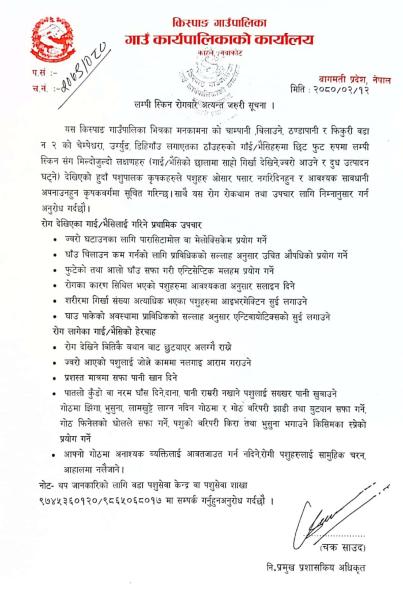 किस्पाङ गाउँपालिका
गाउँ कार्यपालिकाको कार्यालय
कारने, नुवाकोट
बागमती प्रदेश, नेपाल
प.सं :-
च.नं. :-
मिति : २०८०/०२/१२
लम्पी स्किन रोगबारे अत्यन्त जरुरी सूचना ।
यस किस्पाङ गाउँपालिका भित्रका मनकामना को चाम्पानी ,चिलाउने, ठण्डापानी र फिकुरी वडा
न २ को चेम्पेश्वरा, उर्ग्युड, डिहिगाँउ लगाएतका ठाँउहरुको गाँई/भैसिहरुमा छिट फुट रुपमा लम्पी
स्किन संग मिल्दोजुल्दो लक्षणहरु (गाई/भैसिको छालामा साह्रो गिर्खा देखिने,ज्वरो आउने र दुध उत्पादन
घट्ने) देखिएको हुदाँ पशुपालक कृषकहरुले पशुहरु ओसार पसार नगरिदिनहुन र आवश्यक सावधानी
अपनाउनहुन कृषकवर्गमा सूचित गरिन्छ। साथै यस रोग रोकथाम तथा उपचार लागि निम्नानुसार गर्न
अनुरोध गर्दछौ।
रोग देखिएका गाई/भैसिलाई गरिने प्रथामिक उपचार
• ज्वरो घटाउनका लागि पारासिटामोल वा मेलोक्सिकेम प्रयोग गर्ने
• घाँउ चिलाउन कम गर्नको लागि प्राविधिकको सल्लाह अनुसार उचित औषधिको प्रयोग गर्ने
• फुटेको तथा आलो घाँउ सफा गरी एन्टिसेप्टिक मलहम प्रयोग गर्ने
• रोगका कारण सिथिल भएको पशुहरुमा आवश्यकता अनुसार सलाइन दिने
• शरीरमा गिर्खा संख्या अत्याधिक भएका पशुहरुमा आइभरमेक्टिन सुई लगाउने
• घाउ पाकेको अवस्थामा प्राविधिकको सल्लाह अनुसार एन्टिबायोटिक्सको सुई लगाउने
रोग लागेका गाई/भैसिको हेरचाह
• रोग देखिने बित्तिकै बथान बाट छुट्याएर अलग्गै राख्ने
• ज्वरो आएको पशुलाई जोत्ने काममा नलगाइ आराम गराउने
• प्रशस्त मात्रामा सफा पानी खान दिने
• पातलो कुँडो वा नरम घाँस दिने,दाना, पानी राम्ररी नखाने पशुलाई सयखर पानी खुवाउने
गोठमा झिंगा, भुसुना, लामखुट्टे लाग्न नदिन गोठमा र गोठ वरिपरी झाडी तथा घुटथान सफा गर्ने,
गोठ फिनेलको घोलले सफा गर्ने, पशुको वरिपरी किरा तथा भुसुना भगाउने किसिमका स्प्रेको
प्रयोग गर्ने
• आफ्नो गोठमा अनाश्यक व्यक्तिलाई आबतजाउत गर्न नदिने,रोगी पशुहरुलाई सामुहिक चरन,
आहालमा नलैजाने।
नोट- थप जानकारिको लागि वडा पशुसेवा केन्द्र वा पशुसेवा शाखा
९७४५३६०१२०/९८६५०६८०१७ मा सम्पर्क गर्नुहुनअनुरोध गर्दछौं ।
(चक्र साउद)
नि.प्रमुख प्रशासकिय अधिकृत